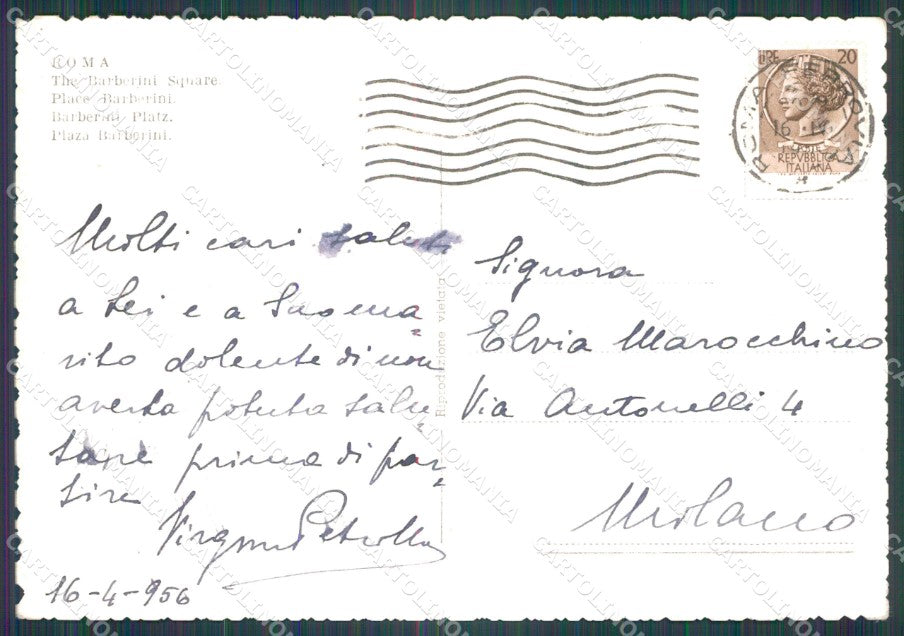 ROMA
The Barberini Square.
Place Barberini.
Barberini Platz.
Plaza Barberini.
LIRE 20
ROMA FERROVIA
16 IV
POSTE
REPVBBLICA
ITALIANA
Riproduzione vietata
Molti cari saluti
a Lei e a Suo ma„
rito dolente di non
averla potuta salu„
tare prima di par„
tire
Petrolla
16-4-956
Signora
Elvia Marocchino
Via Antonelli 4
Milano
CARTOLINOMANIA